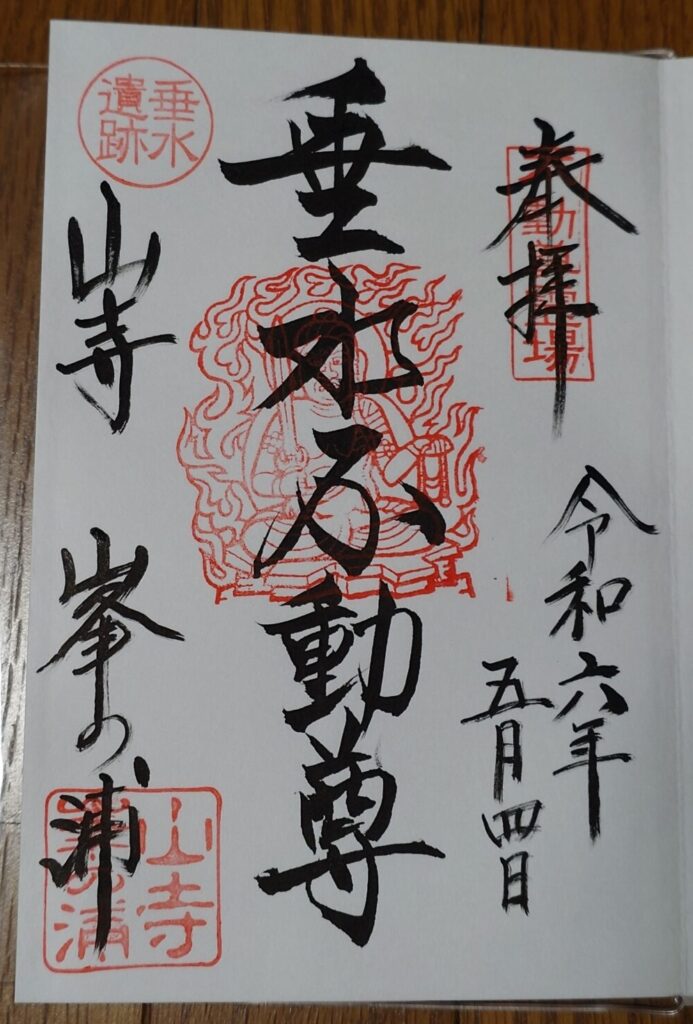 奉拝
令和六年
五月四日
垂水不動尊
垂水
遺跡
山寺
峯の浦
山寺
峯の浦